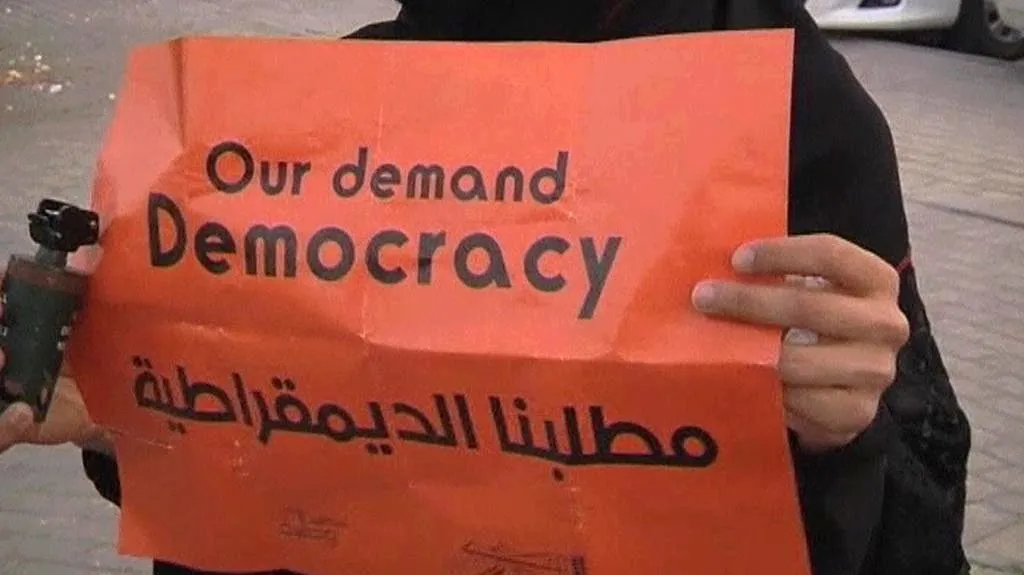 Our demand
Democracy
مطلبنا الديمقراطية